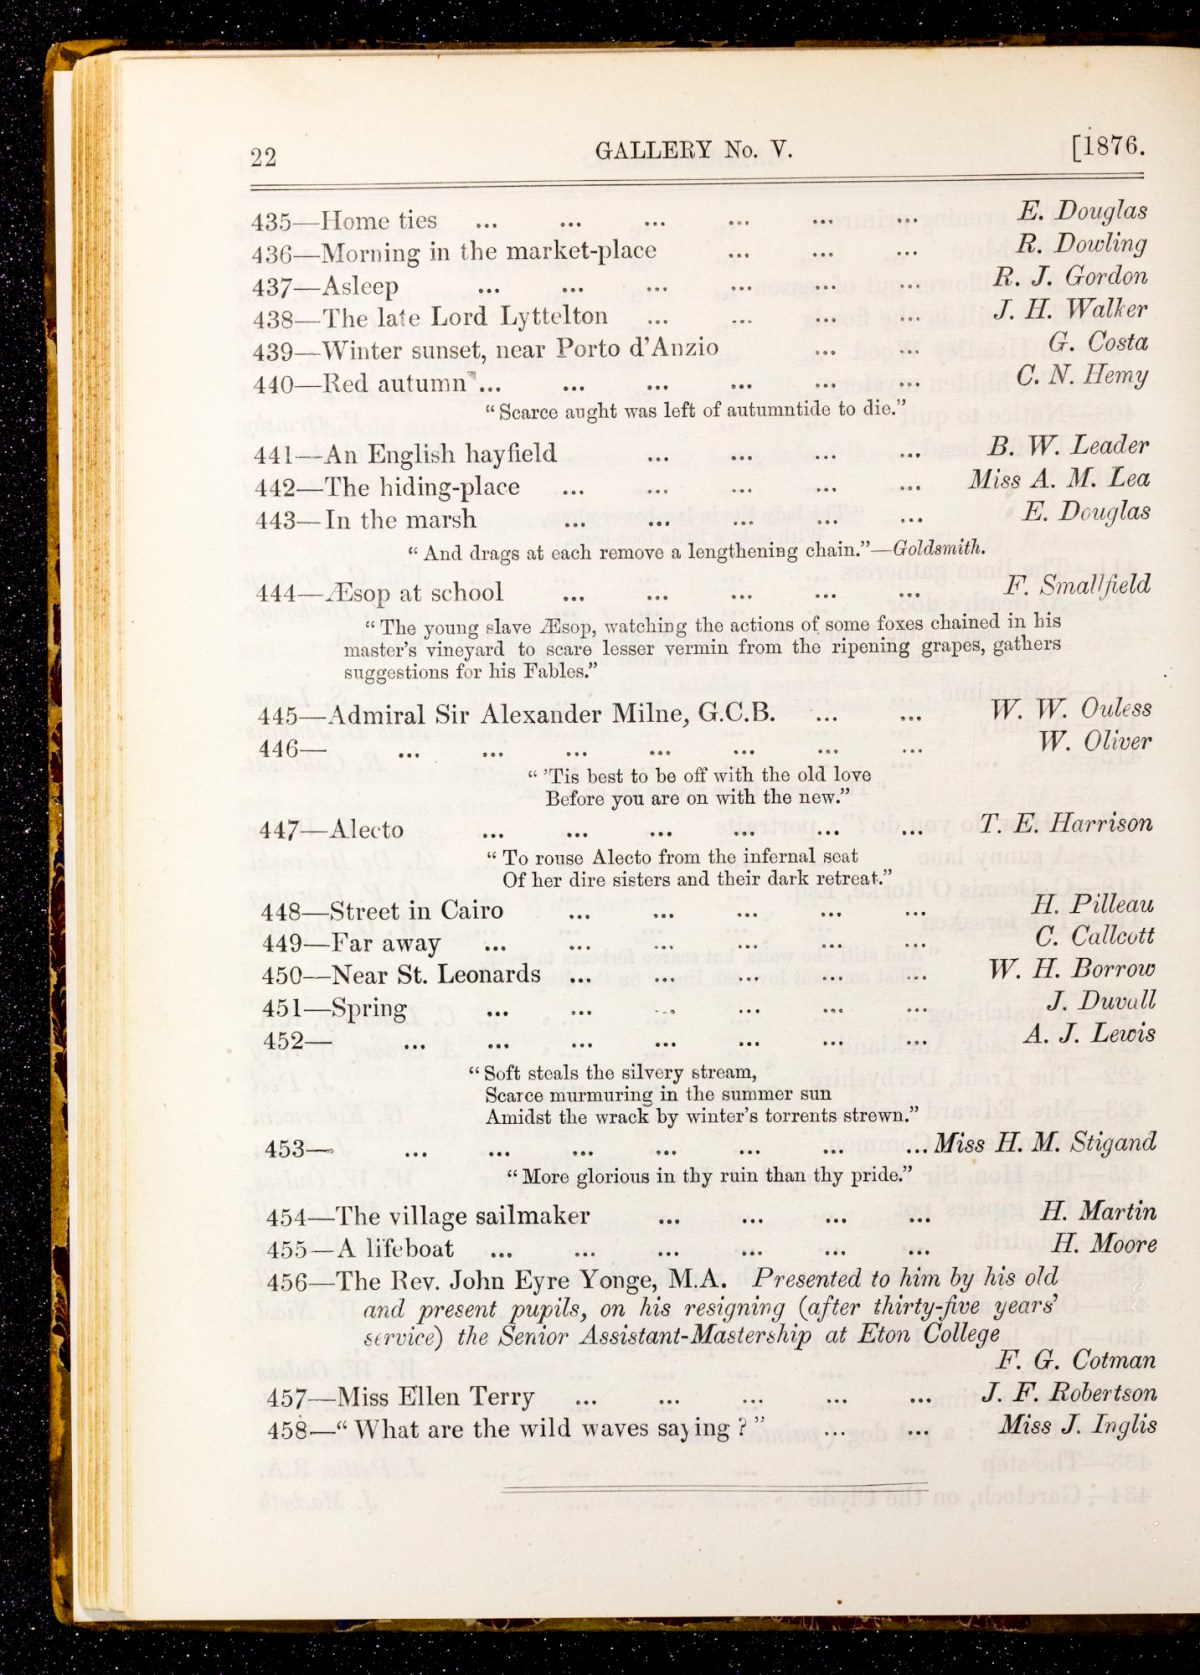 22 GALLERY No. V. [1876.
435—Home ties ... ... ... ... ... ... E. Douglas
436—Morning in the market-place ... ... ... R. Dowling
437—Asleep ... ... ... ... ... ... R. J. Gordon
438—The late Lord Lyttelton ... ... ... ... J. H. Walker
439—Winter sunset, near Porto d'Anzio ... ... G. Costa
440—Red autumn ... ... ... ... ... ... C. N. Hemy
“Scarce aught was left of autumntide to die.”
441—An English hayfield ... ... ... ... B. W. Leader
442—The hiding-place ... ... ... ... ... Miss A. M. Lea
443—In the marsh ... ... ... ... ... E. Douglas
“And drags at each remove a lengthening chain.”—Goldsmith.
444—Æsop at school ... ... ... ... ... F. Smallfield
“The young slave Æsop, watching the actions of some foxes chained in his
master's vineyard to scare lesser vermin from the ripening grapes, gathers
suggestions for his Fables.”
445—Admiral Sir Alexander Milne, G.C.B. ... ... W. W. Ouless
446— ... ... ... ... ... ... ... W. Oliver
“ 'Tis best to be off with the old love
Before you are on with the new.”
447—Alecto ... ... ... ... ... ... T. E. Harrison
“To rouse Alecto from the infernal seat
Of her dire sisters and their dark retreat.”
448—Street in Cairo ... ... ... ... ... H. Pilleau
449—Far away ... ... ... ... ... ... C. Callcott
450—Near St. Leonards ... ... ... ... ... W. H. Borrow
451—Spring ... ... ... ... ... ... J. Duvall
452— ... ... ... ... ... ... ... A. J. Lewis
“Soft steals the silvery stream,
Scarce murmuring in the summer sun
Amidst the wrack by winter's torrents strewn.”
453— ... ... ... ... ... ... ... Miss H. M. Stigand
“More glorious in thy ruin than thy pride.”
454—The village sailmaker ... ... ... ... H. Martin
455—A lifeboat ... ... ... ... ... ... H. Moore
456—The Rev. John Eyre Yonge, M.A. Presented to him by his old
and present pupils, on his resigning (after thirty-five years'
service) the Senior Assistant-Mastership at Eton College
F. G. Cotman
457—Miss Ellen Terry ... ... ... ... ... J. F. Robertson
458—“What are the wild waves saying?” ... ... Miss J. Inglis